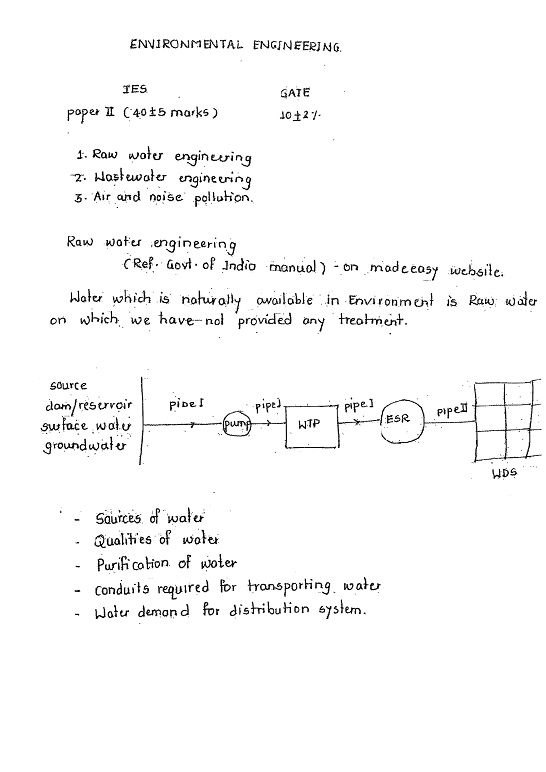 ENVIRONMENTAL ENGINEERING.
IES
GATE
paper II (40±5 marks)
10±2%
1. Raw water engineering
2. Wastewater engineering
3. Air and noise pollution.
Raw water engineering
(Ref. Govt. of India manual) - on madeeasy website.
Water which is naturally available in Environment is Raw water
on which we have not provided any treatment.
source
dam/reservoir
surface water
groundwater
pipe I
pump
pipe I
WTP
pipe I
ESR
pipe II
WDS
- Sources of water
- Qualities of water
- Purification of water
- conduits required for transporting water
- Water demand for distribution system.